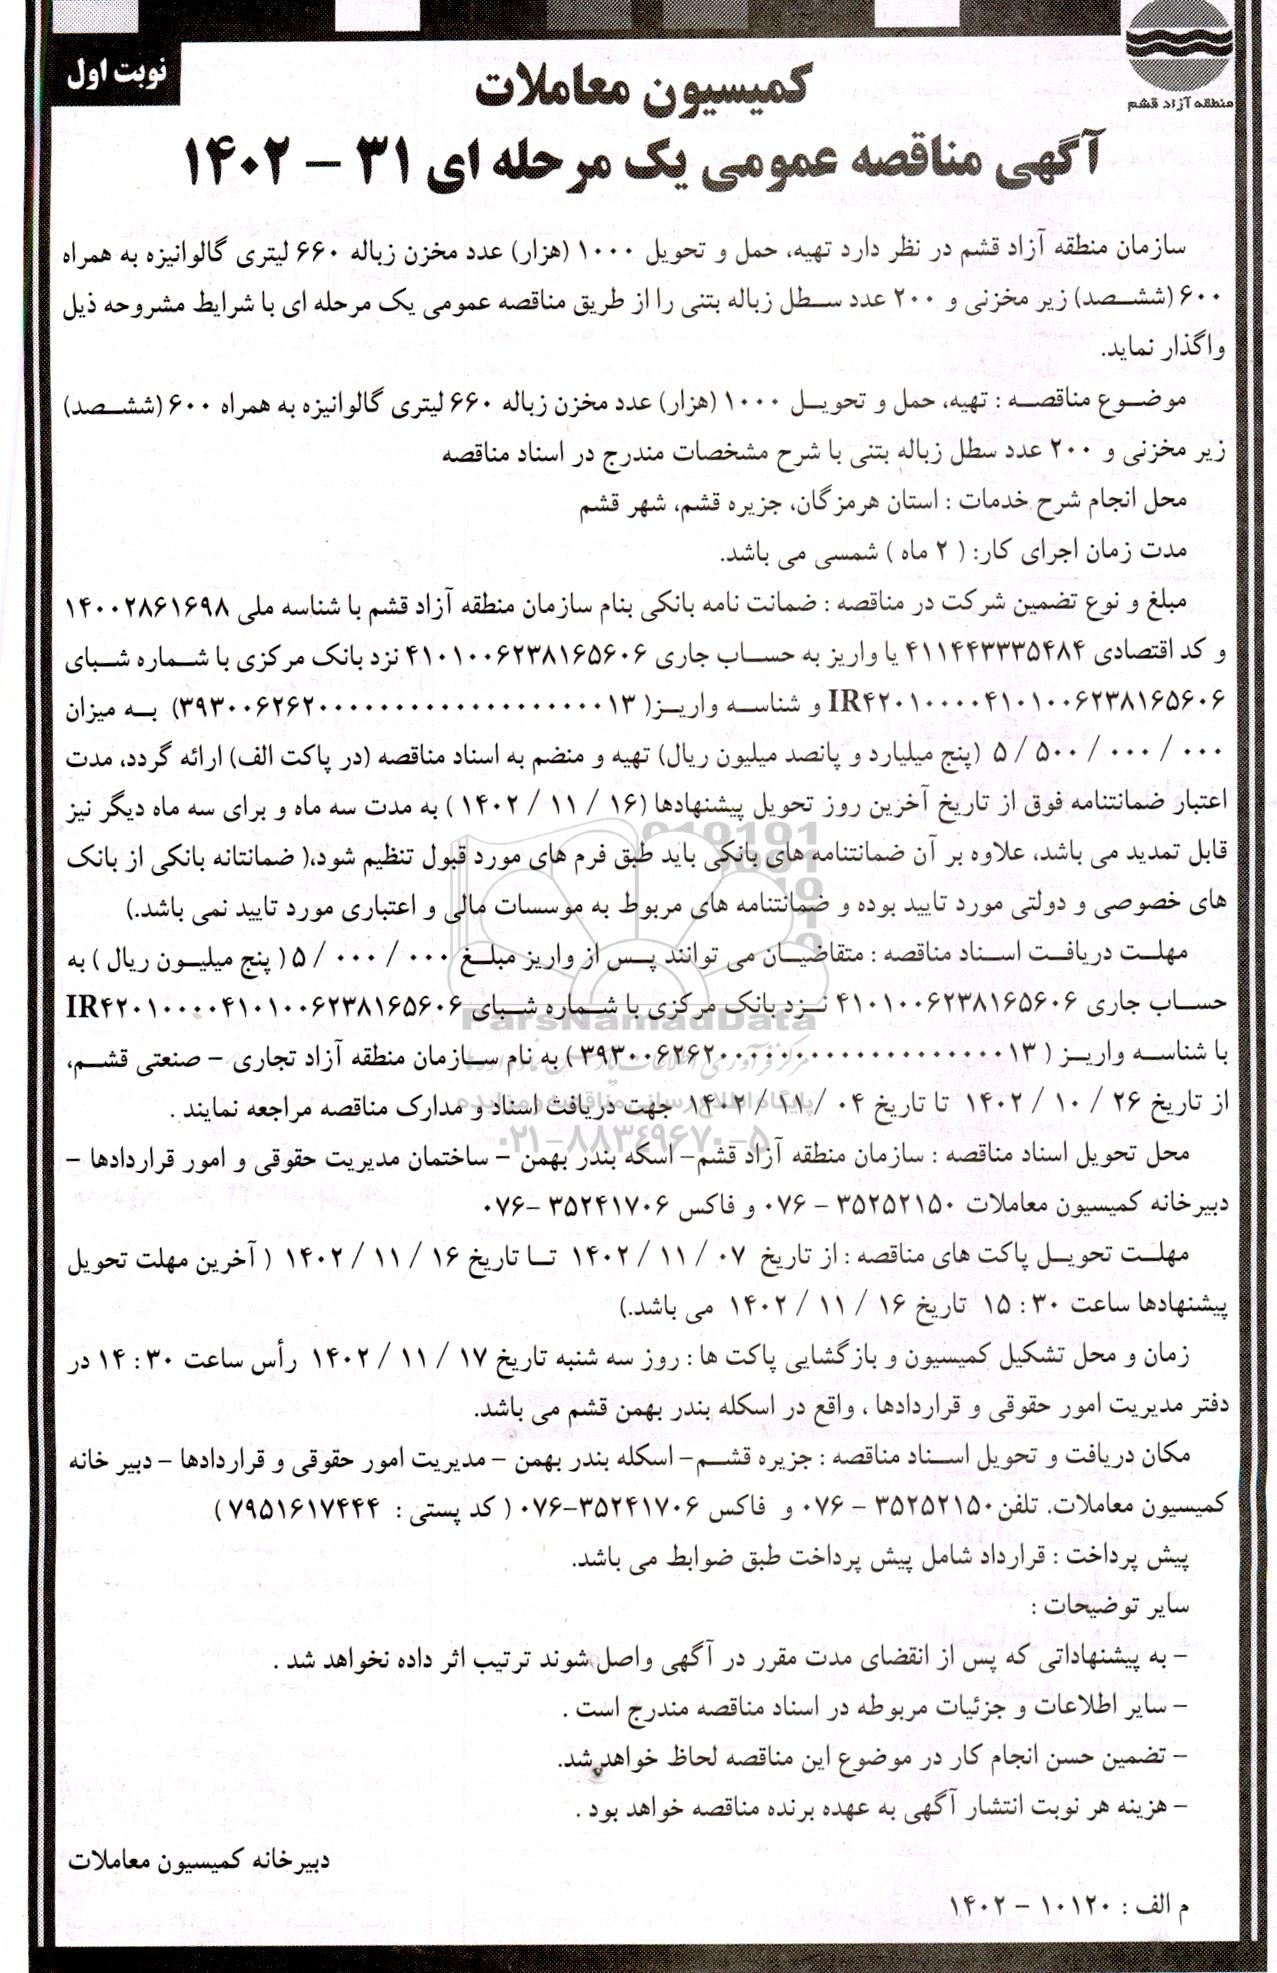 منطقه آزاد قشم
نوبت اول
کمیسیون معاملات
آگهی مناقصه عمومی یک مرحله ای ۳۱ – ۱۴۰۲
سازمان منطقه آزاد قشم در نظر دارد تهیه، حمل و تحویل ۱۰۰۰ (هزار) عدد مخزن زباله ۶۶۰ لیتری گالوانیزه به همراه
۶۰۰ (ششصد) زیر مخزنی و ۲۰۰ عدد سطل زباله بتنی را از طریق مناقصه عمومی یک مرحله ای با شرایط مشروحه ذیل
واگذار نماید.
موضوع مناقصه : تهیه، حمل و تحویل ۱۰۰۰ (هزار) عدد مخزن زباله ۶۶۰ لیتری گالوانیزه به همراه ۶۰۰ (ششصد)
زیر مخزنی و ۲۰۰ عدد سطل زباله بتنی با شرح مشخصات مندرج در اسناد مناقصه
محل انجام شرح خدمات : استان هرمزگان، جزیره قشم، شهر قشم
مدت زمان اجرای کار: ( ۲ ماه ) شمسی می باشد.
مبلغ و نوع تضمین شرکت در مناقصه : ضمانت نامه بانکی بنام سازمان منطقه آزاد قشم با شناسه ملی ۱۴۰۰۲۸۶۱۶۹۸
و کد اقتصادی ۴۱۱۴۴۳۳۳۵۴۸۴ یا واریز به حساب جاری ۴۱۰۱۰۰۶۲۳۸۱۶۵۶۰۶ نزد بانک مرکزی با شماره شبای
IR۴۲۰۱۰۰۰۰۴۱۰۱۰۰۶۲۳۸۱۶۵۶۰۶ و شناسه واریز( ۳۹۳۰۰۶۲۶۲۰۰۰۰۰۰۰۰۰۰۰۰۰۰۰۰۰۰۰۱۳) به میزان
۵ / ۵۰۰ / ۰۰۰ / ۰۰۰ (پنج میلیارد و پانصد میلیون ریال) تهیه و منضم به اسناد مناقصه (در پاکت الف) ارائه گردد، مدت
اعتبار ضمانتنامه فوق از تاریخ آخرین روز تحویل پیشنهادها (۱۶ / ۱۱ / ۱۴۰۲ ) به مدت سه ماه و برای سه ماه دیگر نیز
قابل تمدید می باشد، علاوه بر آن ضمانتنامه های بانکی باید طبق فرم های مورد قبول تنظیم شود،( ضمانتانه بانکی از بانک
های خصوصی و دولتی مورد تایید بوده و ضمانتنامه های مربوط به موسسات مالی و اعتباری مورد تایید نمی باشد.)
مهلت دریافت اسناد مناقصه : متقاضیان می توانند پس از واریز مبلغ ۵ / ۰۰۰ / ۰۰۰ ( پنج میلیون ریال ) به
حساب جاری ۴۱۰۱۰۰۶۲۳۸۱۶۵۶۰۶ نزد بانک مرکزی با شماره شبای IR۴۲۰۱۰۰۰۰۴۱۰۱۰۰۶۲۳۸۱۶۵۶۰۶
با شناسه واریز ( ۳۹۳۰۰۶۲۶۲۰۰۰۰۰۰۰۰۰۰۰۰۰۰۰۰۰۰۰۱۳ ) به نام سازمان منطقه آزاد تجاری – صنعتی قشم،
از تاریخ ۲۶ / ۱۰ / ۱۴۰۲ تا تاریخ ۰۴ / ۱۱ / ۱۴۰۲ جهت دریافت اسناد و مدارک مناقصه مراجعه نمایند .
محل تحویل اسناد مناقصه : سازمان منطقه آزاد قشم- اسکه بندر بهمن – ساختمان مدیریت حقوقی و امور قراردادها –
دبیرخانه کمیسیون معاملات ۳۵۲۵۲۱۵۰ – ۰۷۶ و فاکس ۳۵۲۴۱۷۰۶ –۰۷۶
مهلت تحویل پاکت های مناقصه : از تاریخ ۰۷ / ۱۱ / ۱۴۰۲ تا تاریخ ۱۶ / ۱۱ / ۱۴۰۲ ( آخرین مهلت تحویل
پیشنهادها ساعت ۳۰ : ۱۵ تاریخ ۱۶ / ۱۱ / ۱۴۰۲ می باشد.)
زمان و محل تشکیل کمیسیون و بازگشایی پاکت ها : روز سه شنبه تاریخ ۱۷ / ۱۱ / ۱۴۰۲ رأس ساعت ۳۰ : ۱۴ در
دفتر مدیریت امور حقوقی و قراردادها ، واقع در اسکله بندر بهمن قشم می باشد.
مکان دریافت و تحویل اسناد مناقصه : جزیره قشم- اسکله بندر بهمن – مدیریت امور حقوقی و قراردادها – دبیر خانه
کمیسیون معاملات. تلفن۳۵۲۵۲۱۵۰ – ۰۷۶ و فاکس ۳۵۲۴۱۷۰۶-۰۷۶ ( کد پستی : ۷۹۵۱۶۱۷۴۴۴ )
پیش پرداخت : قرارداد شامل پیش پرداخت طبق ضوابط می باشد.
سایر توضیحات :
– به پیشنهاداتی که پس از انقضای مدت مقرر در آگهی واصل شوند ترتیب اثر داده نخواهد شد .
– سایر اطلاعات و جزئیات مربوطه در اسناد مناقصه مندرج است .
– تضمین حسن انجام کار در موضوع این مناقصه لحاظ خواهد شد.
– هزینه هر نوبت انتشار آگهی به عهده برنده مناقصه خواهد بود .
دبیرخانه کمیسیون معاملات
م الف : ۱۰۱۲۰ – ۱۴۰۲
ParsNamadData
پایگاه اطلاع رسانی مناقصه و مزایده
۰۲۱-۸۸۳۴۹۶۷۰-۵